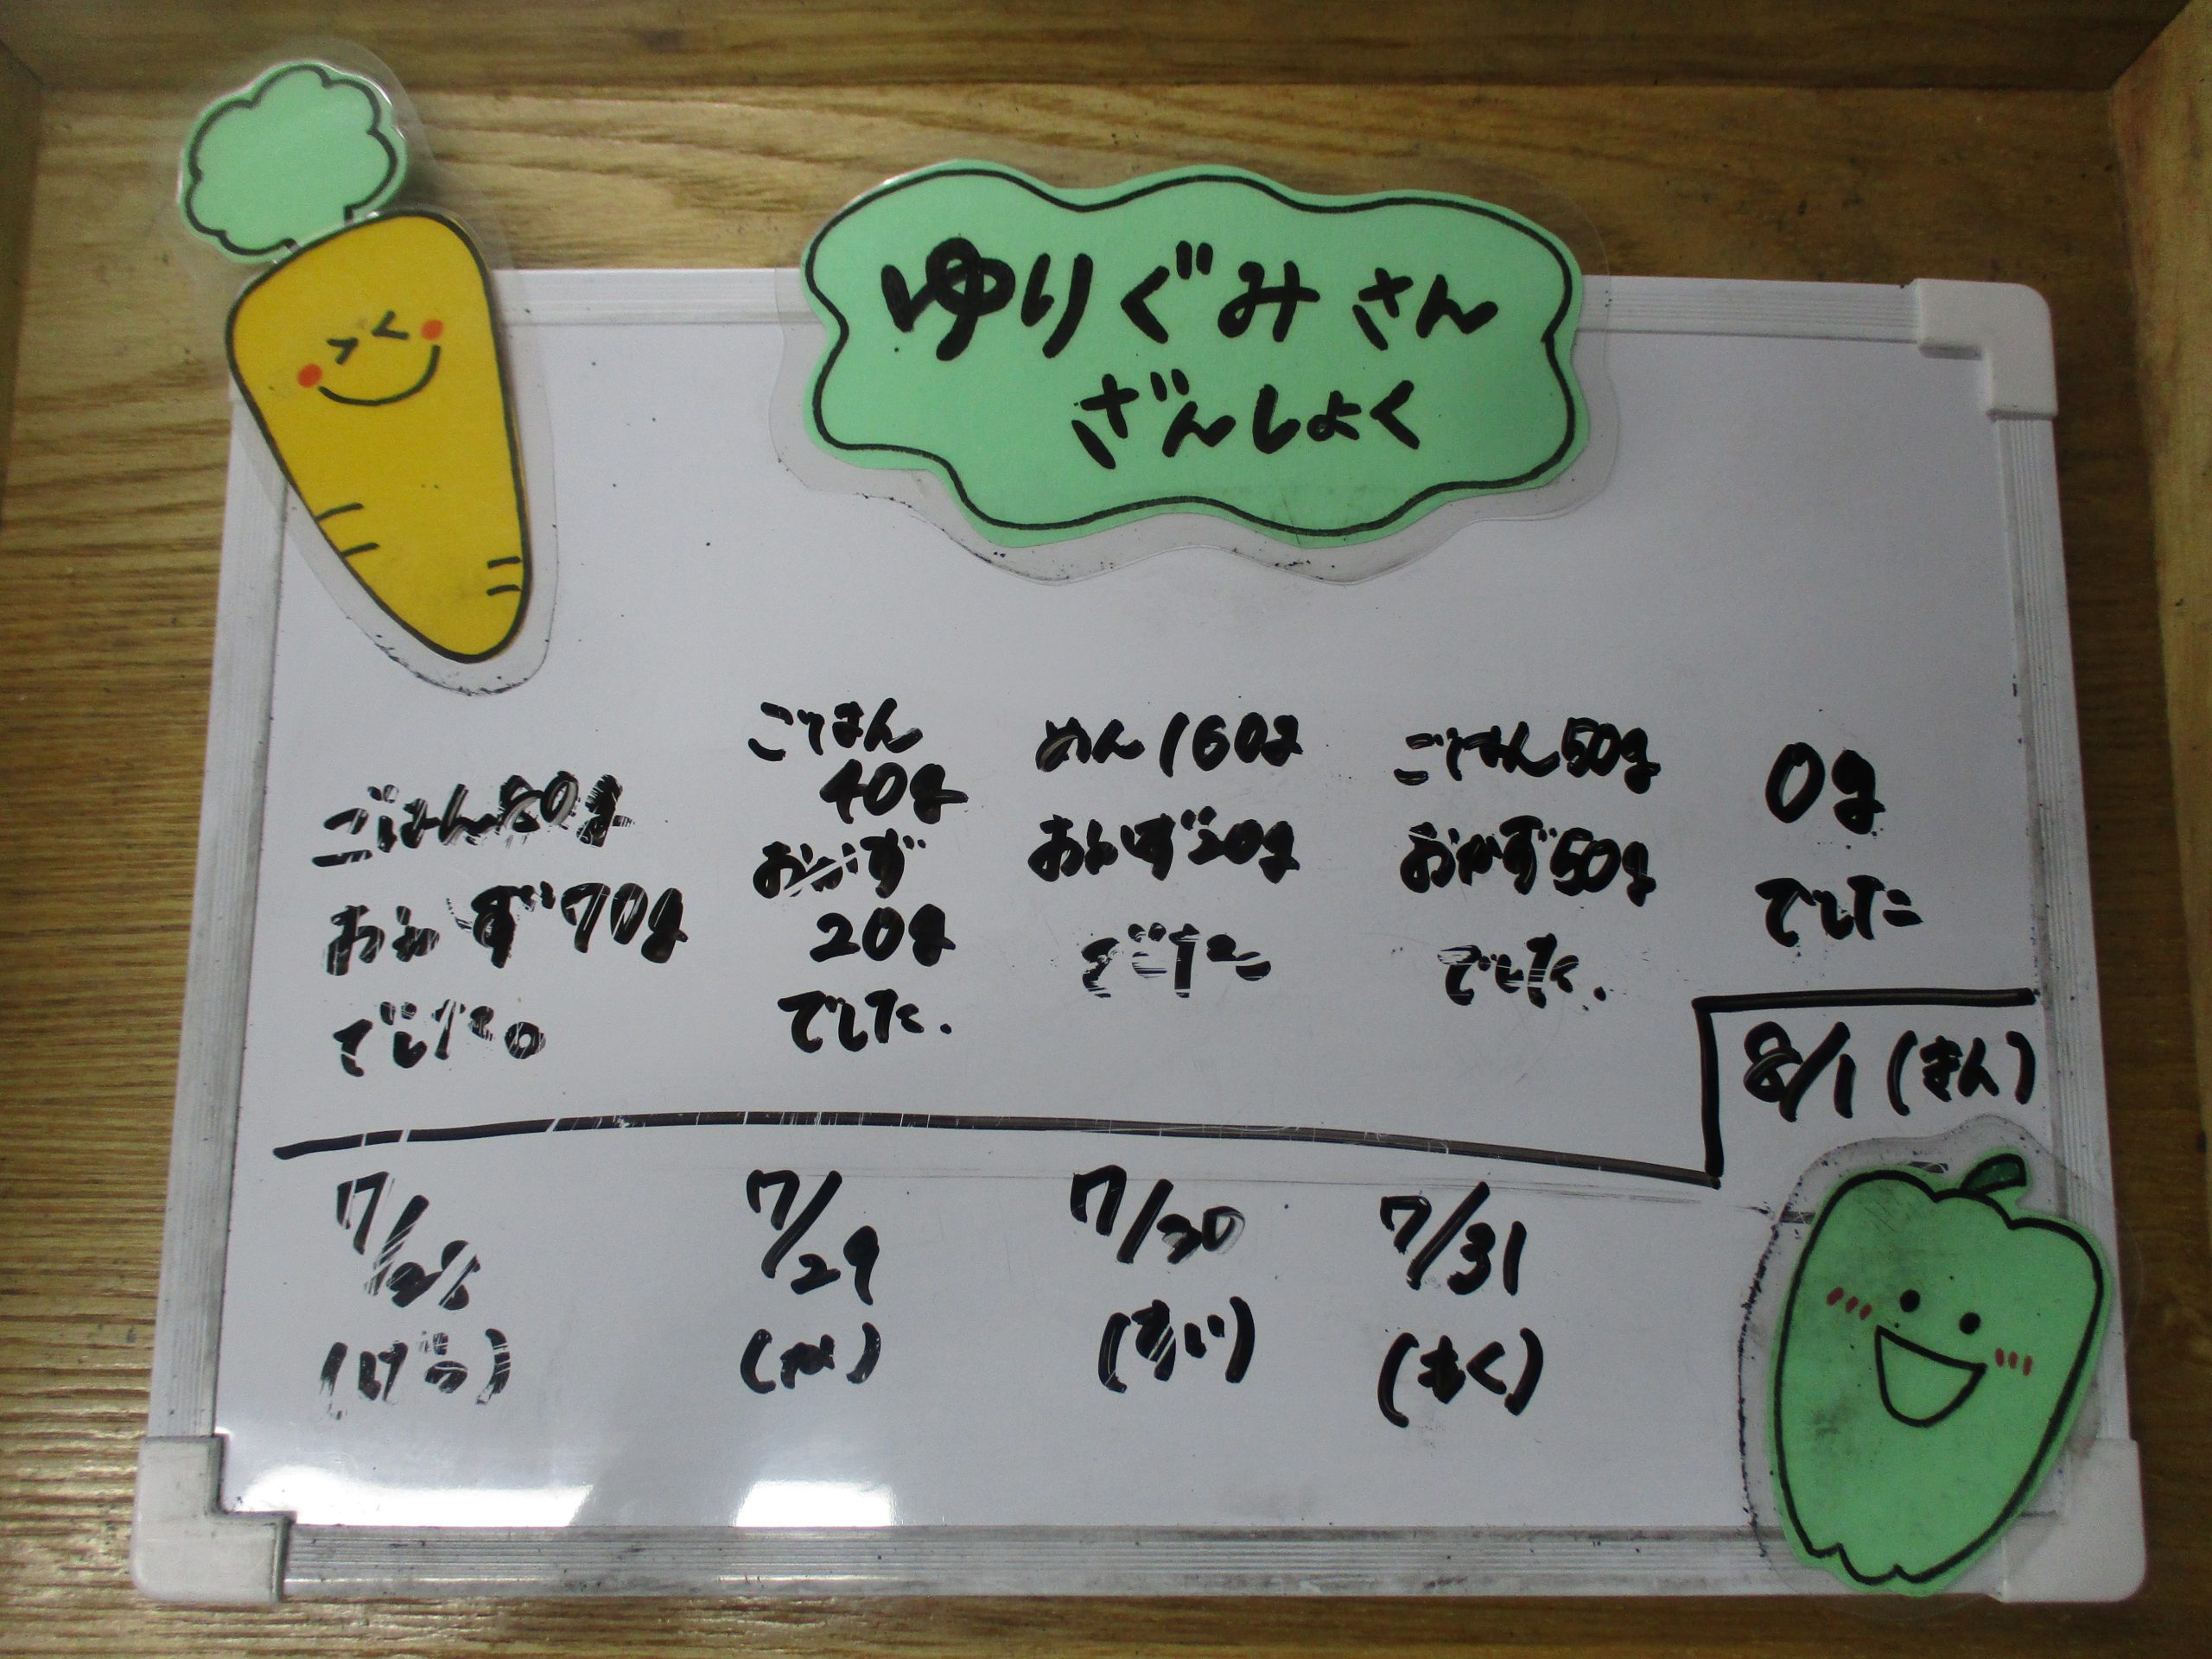 ゆりぐみさん
ざんしょく
ごはん80g
おかず70g
でした。
ごはん
40g
おかず
20g
でした.
めん160g
おかず20g
でした
ごはん50g
おかず50g
でした.
0g
でした
7/28
(げつ)
7/29
(か)
7/30
(すい)
7/31
(もく)
8/1(きん)